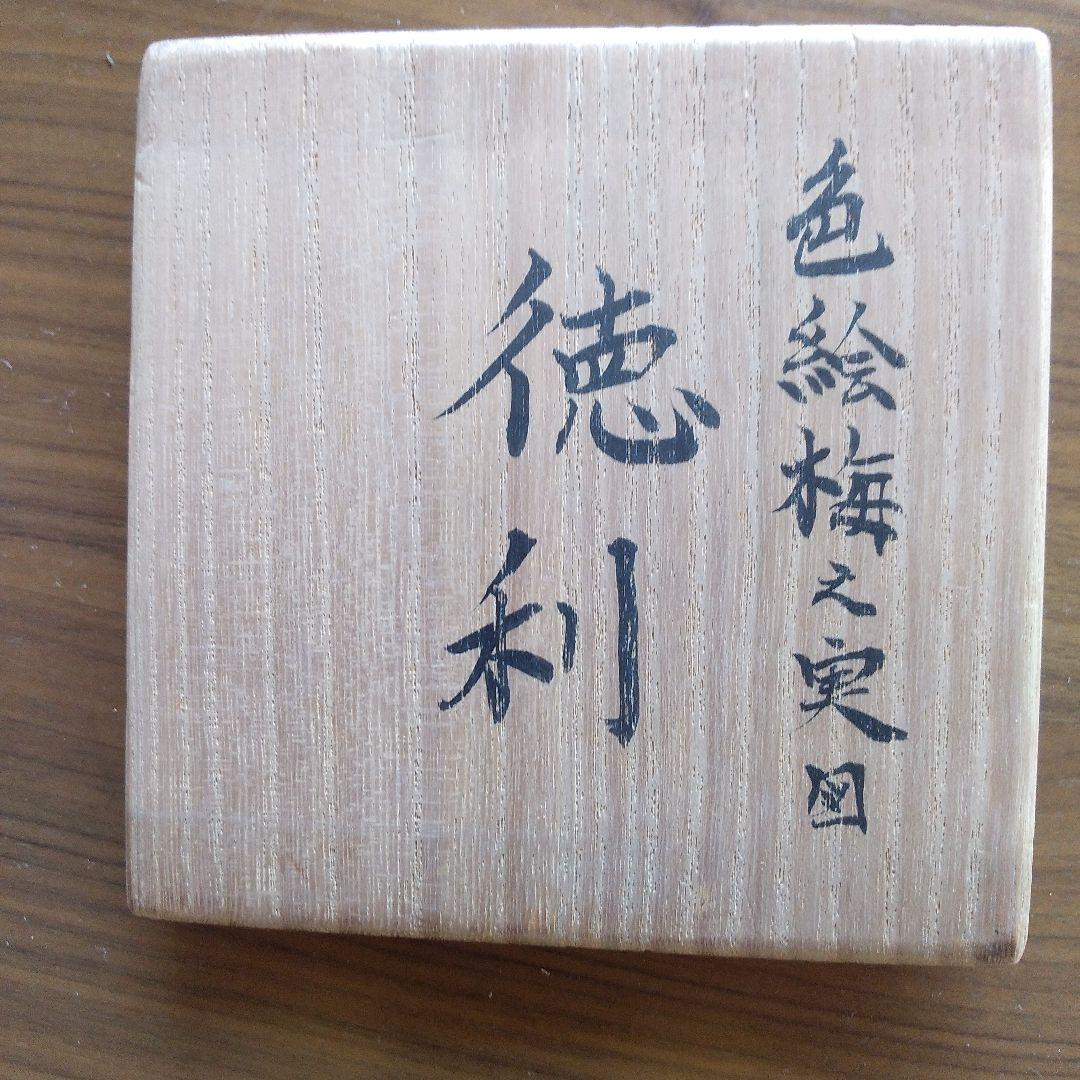 色絵梅之実図
徳利